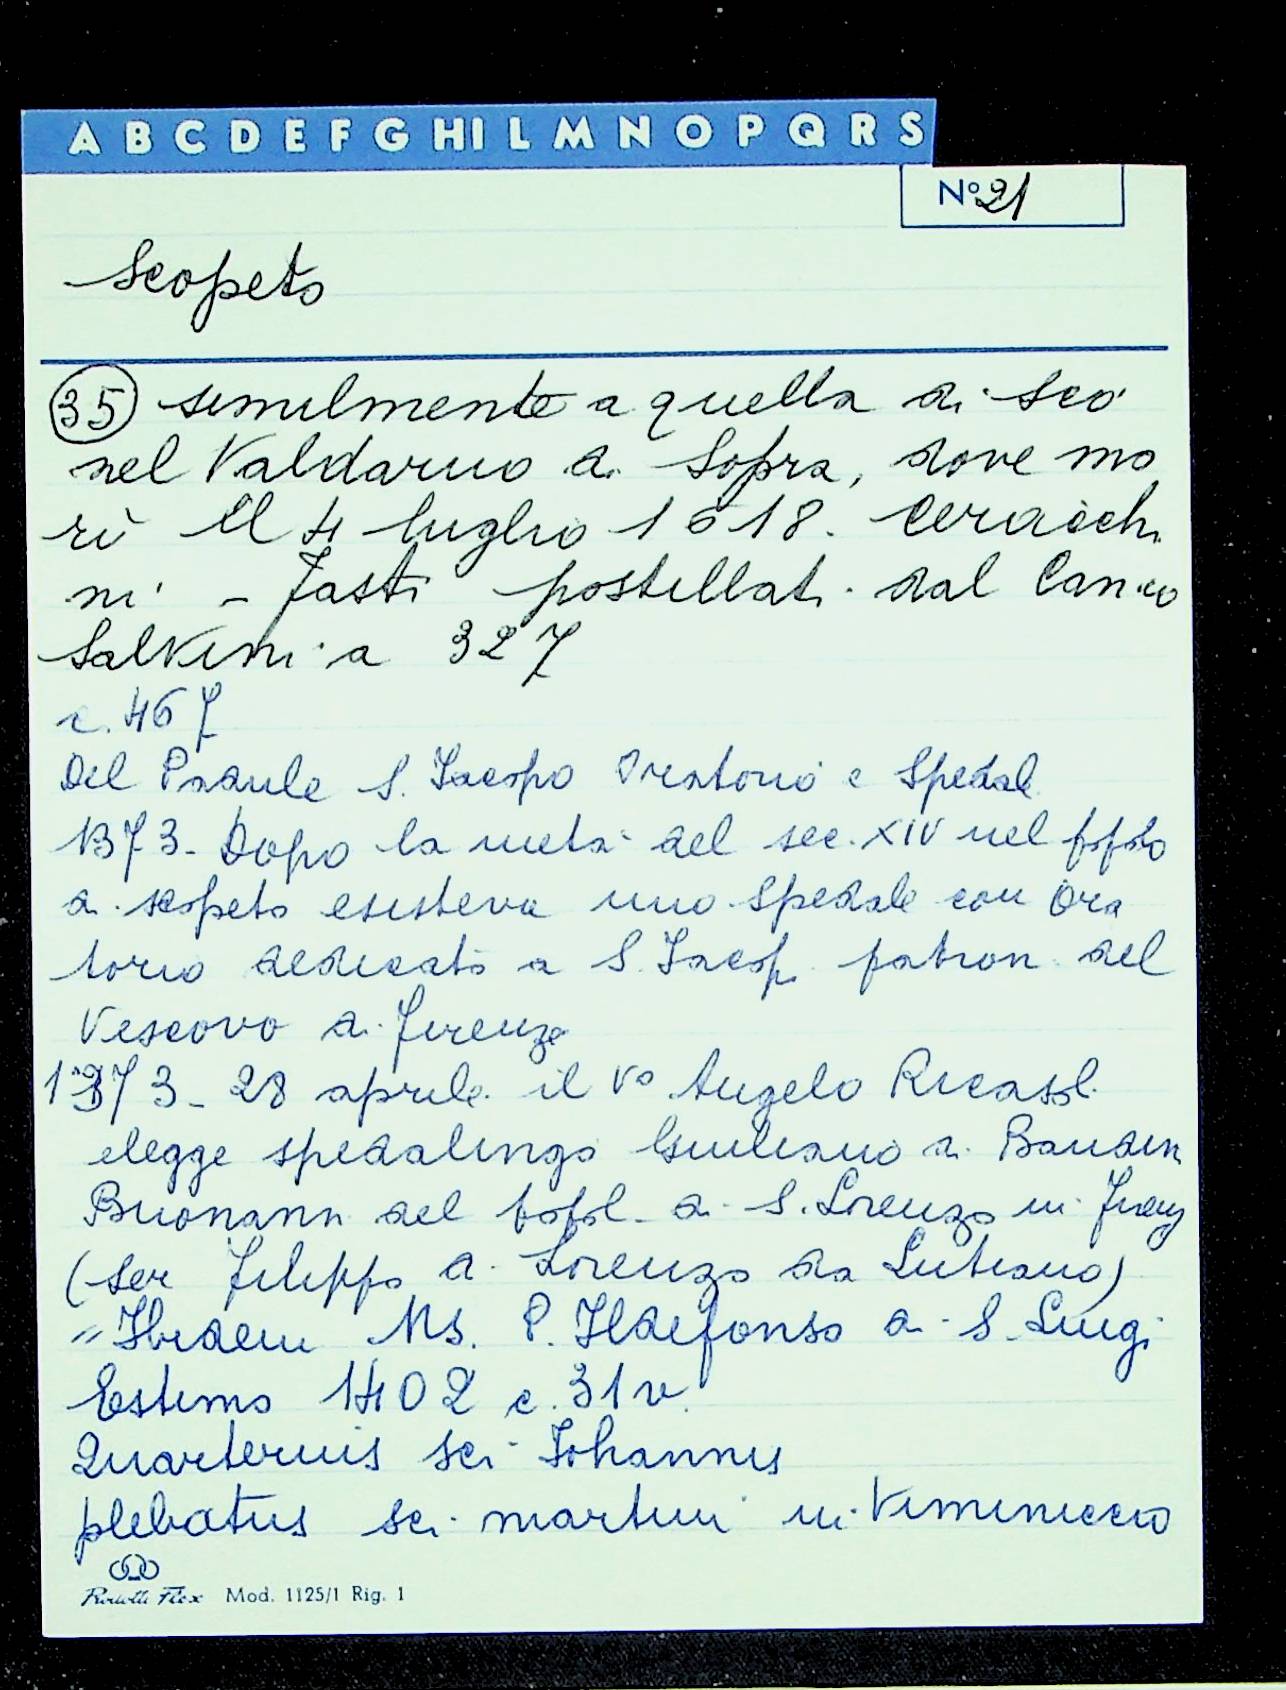 A B C D E F G H I L M N O P Q R S
Nº 21
Scopeto
35 similmente a quella di Scò
nel Valdarno di Sopra, dove mo
rì il 4 luglio 1618. Ceracchi
ni - Fasti postillati dal Can.co
Salvini a 327
c. 467
Del Padule S. Jacopo Oratorio e Spedale
1373 - Dopo la metà del sec. XIV nel popolo
di Scopeto esisteva uno Spedale con Ora
torio dedicato a S. Jacop. patron. del
Vescovo di Firenze
1373 - 28 aprile il Vº Angelo Ricasol.
elegge spedalingo Giuliano di Bandin
Buonann. del popol. di S. Lorenzo in Firenz
(ser Filippo di Lorenzo da Lutiano)
" Ibidem Ms. P. Ildefonso di S. Luigi
Estimo 1402 c. 31 v.
Quarterius sci Johannis
plebatus sci martini in Viminiccio
Mod. 1125/1 Rig. 1